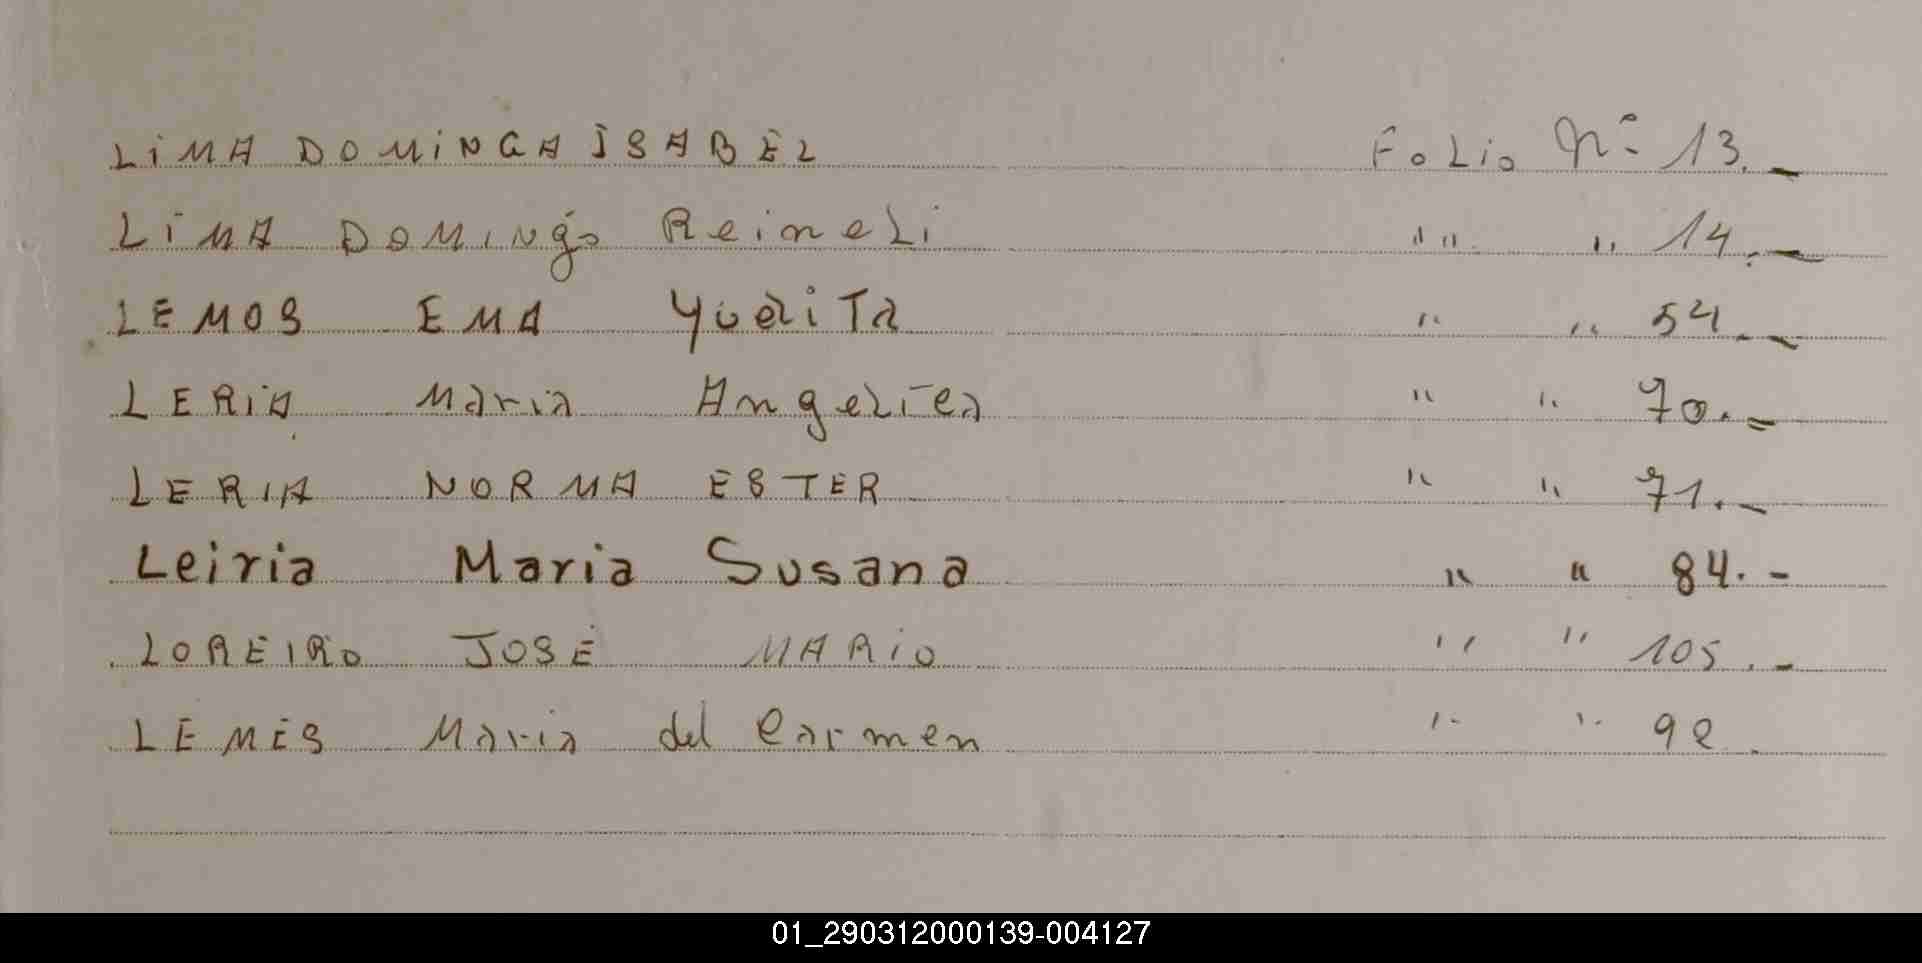 LIMA DOMINGA ISABEL Folio Nº 13.-
LIMA DOMINgo ReineLi " " 14.-
LEMOS EMA " " 54.-
LERIA Maria Angelica " " 70.=
LERIA NORMA ESTER " " 71.-
Leiria Maria Susana " " 84.-
LOREIRO JOSE MARIO " " 105.-
LEMES Maria del Carmen " " 92.
01_290312000139-004127